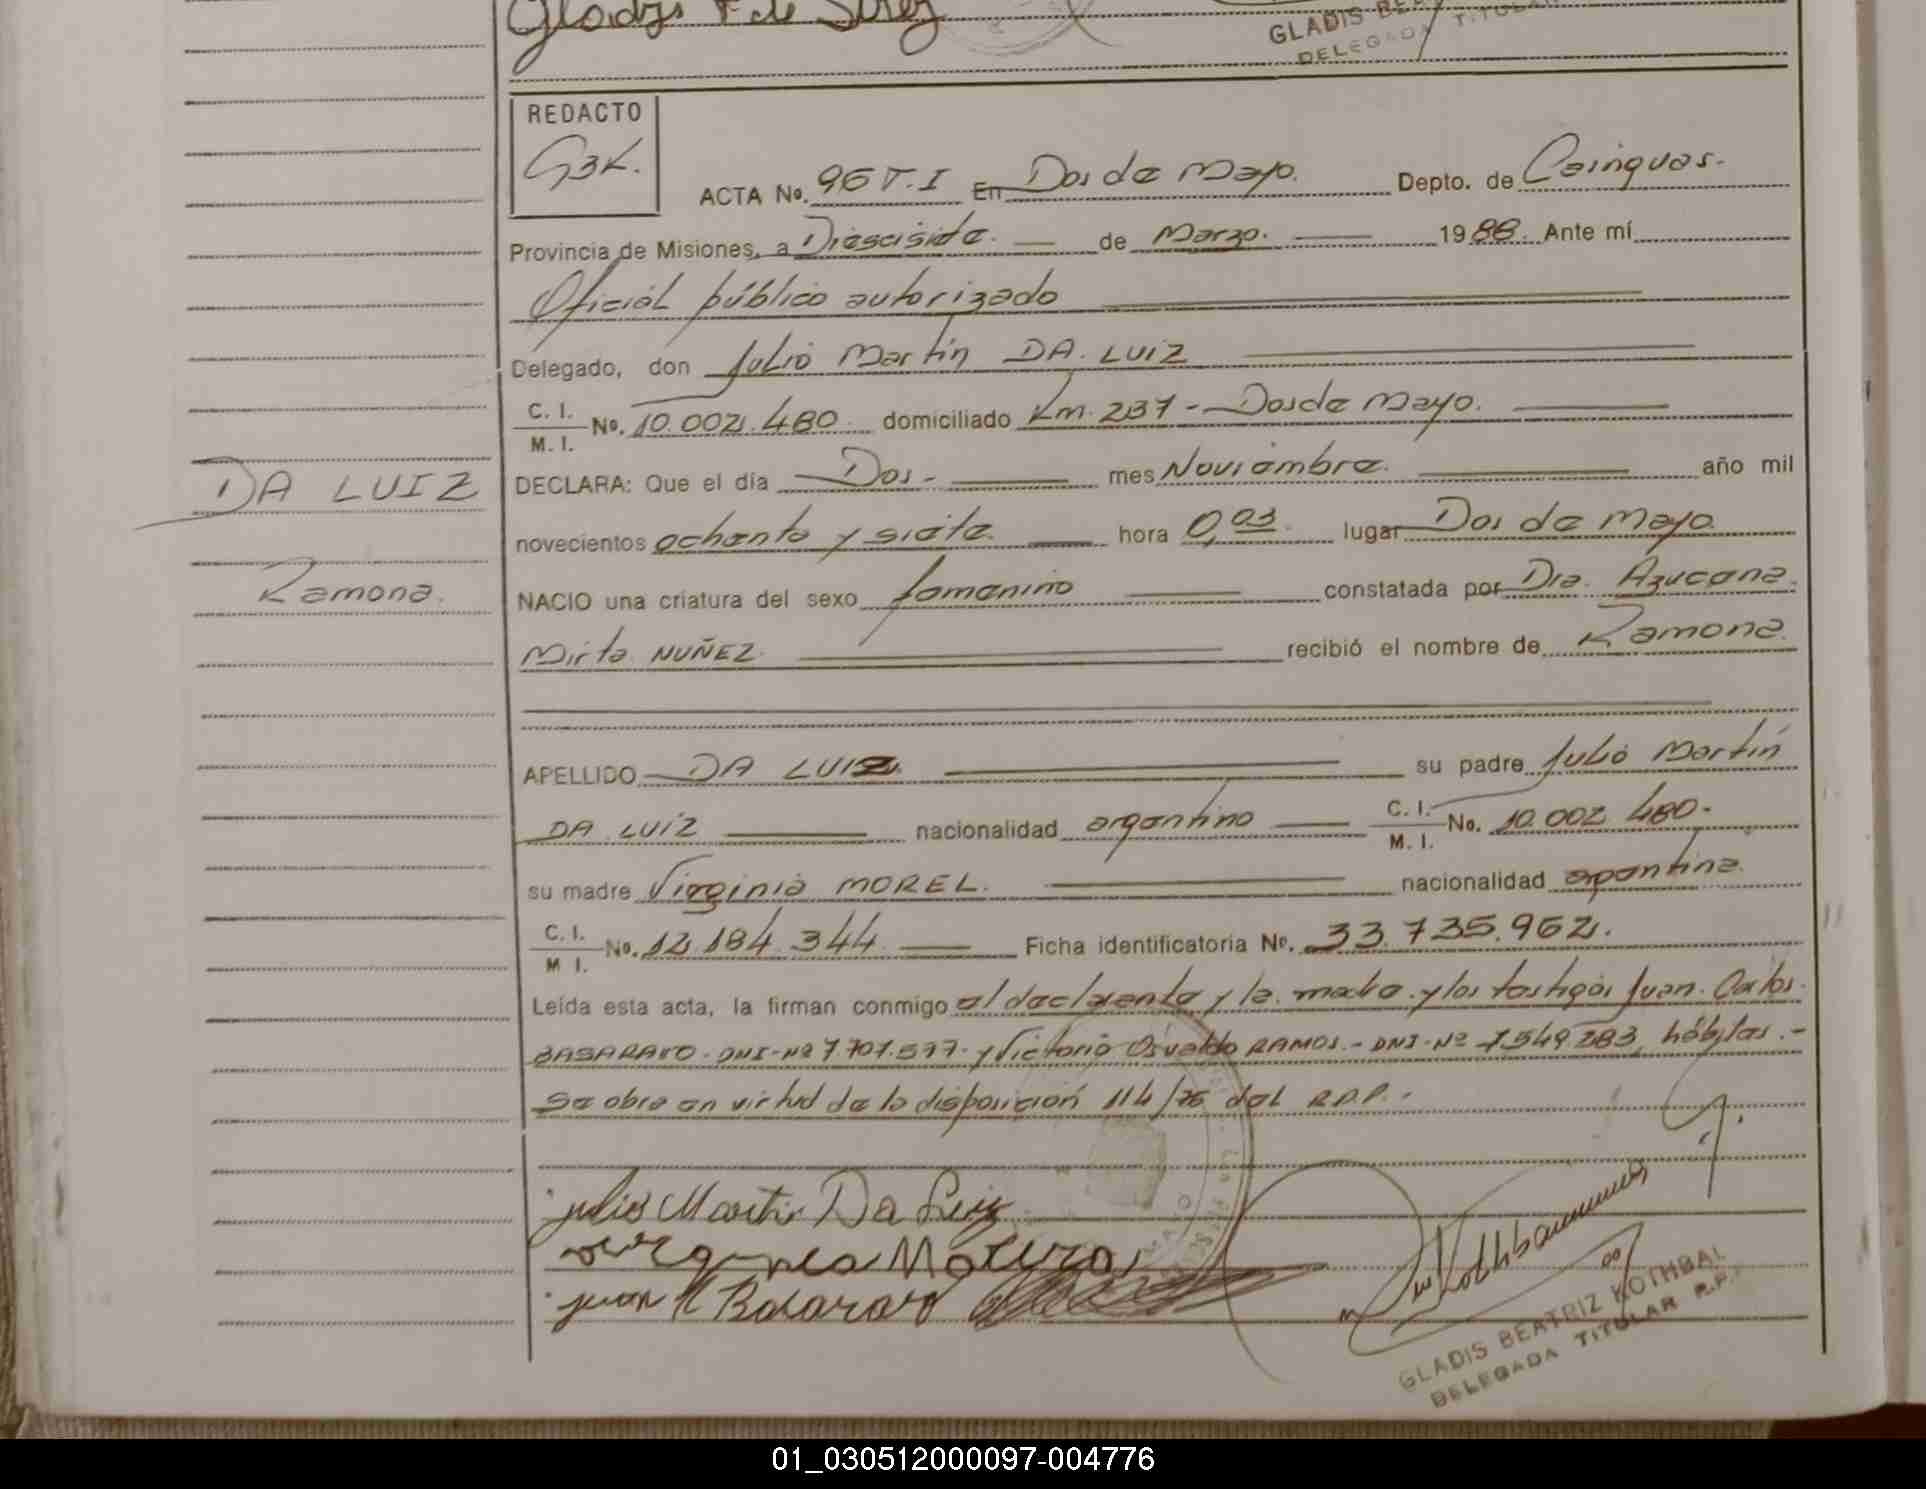 Gladys F de
GLADIS BE
DELEGADA TITULAR
REDACTO
GBK.
ACTA No. 96 T.I En Dos de Mayo. Depto. de Cainguas.
Provincia de Misiones, a Diesciside. de Marzo. 1988. Ante mí
Oficial público autorizado
Delegado, don Julio Martín DA. LUIZ
C. I.
M. I.
No. 10.002.480 domiciliado Km. 237 - Dos de Mayo.
DA LUIZ
DECLARA: Que el día Dos- mes Noviembre. año mil
novecientos ochenta y siete. hora 0,03. lugar Dos de Mayo.
Ramona.
NACIO una criatura del sexo femenino constatada por Dra. Azucena.
Mirta NUÑEZ. recibió el nombre de Ramona.
APELLIDO DA LUIZ. su padre Julio Martín
DA LUIZ nacionalidad argentino C. I.
M. I.
No. 10.002 480.-
su madre Virginia MOREL. nacionalidad argentina.
C. I.
M I.
No. 12.184.344 Ficha identificatoria No. 33.735.962.
Leída esta acta, la firman conmigo el declarante y la madre. y los testigos Juan. Carlos.
BASARAVO. DNI-Nº 7.707.577. y Victorio Osvaldo RAMOS.- DNI-Nº 7.549.283, hábiles.-
Se obra en virtud de la disposición 114/76 del R.P.P.-
Julio Martin Da Luiz
Juan
GLADIS BEATRIZ KOTHBAI
DELEGADA TITULAR R.P.
01_030512000097-004776